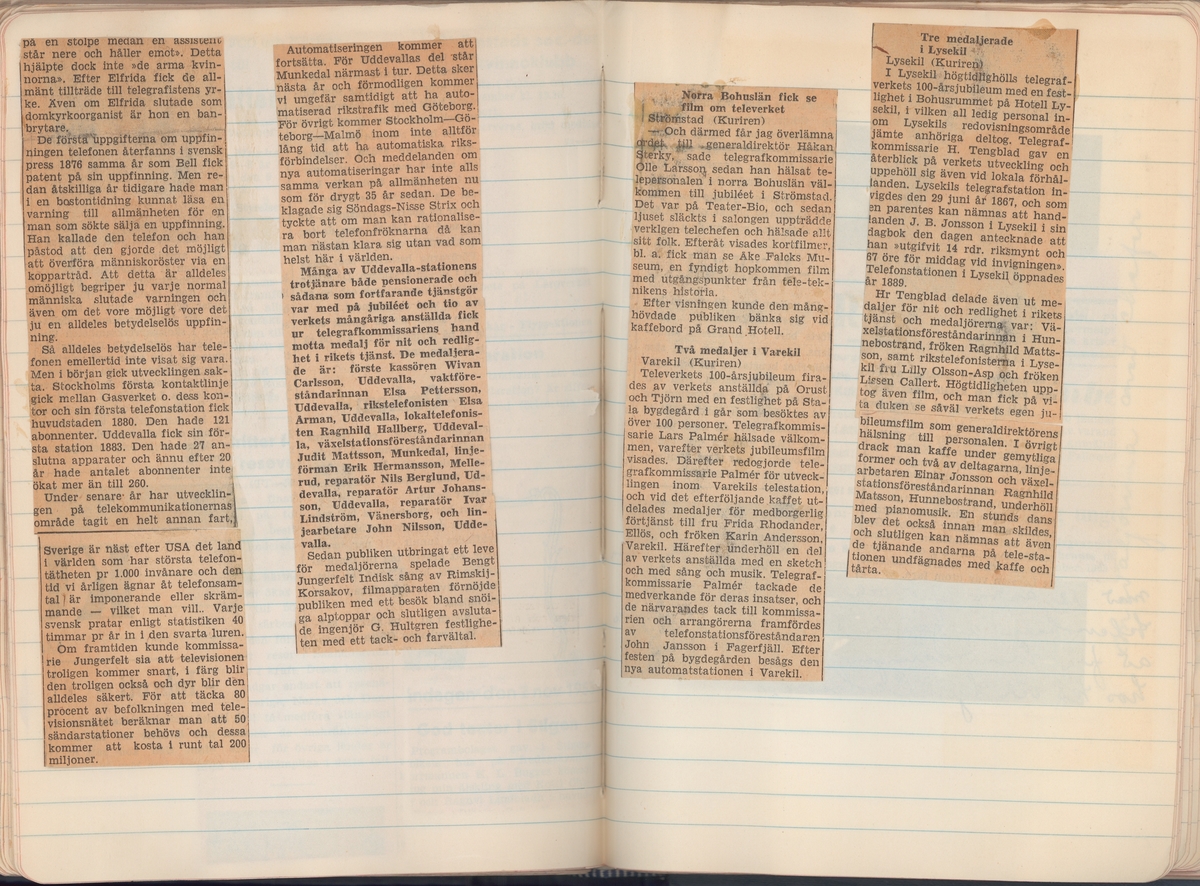 på en stolpe medan en assistent
står nere och håller emot». Detta
hjälpte dock inte »de arma kvin-
norna». Efter Elfrida fick de all-
mänt tillträde till telegrafistens yr-
ke. Även om Elfrida slutade som
domkyrkoorganist är hon en ban-
brytare.
De första uppgifterna om uppfin-
ningen telefonen återfanns i svensk
press 1876 samma år som Bell fick
patent på sin uppfinning. Men re-
dan åtskilliga år tidigare hade man
i en bostontidning kunnat läsa en
varning till allmänheten för en
man som sökte sälja en uppfinning.
Han kallade den telefon och han
påstod att den gjorde det möjligt
att överföra människoröster via en
koppartråd. Att detta är alldeles
omöjligt begriper ju varje normal
människa slutade varningen och
även om det vore möjligt vore det
ju en alldeles betydelselös uppfin-
ning.
Så alldeles betydelselös har tele-
fonen emellertid inte visat sig vara.
Men i början gick utvecklingen sak-
ta. Stockholms första kontaktlinje
gick mellan Gasverket o. dess kon-
tor och sin första telefonstation fick
huvudstaden 1880. Den hade 121
abonnenter. Uddevalla fick sin för-
sta station 1883. Den hade 27 an-
slutna apparater och ännu efter 20
år hade antalet abonnenter inte
ökat mer än till 260.
Under senare år har utvecklin-
gen på telekommunikationernas
område tagit en helt annan fart,
Sverige är näst efter USA det land
i världen som har största telefon-
tätheten pr 1.000 invånare och den
tid vi årligen ägnar åt telefonsam-
tal är imponerande eller skräm-
mande — vilket man vill.. Varje
svensk pratar enligt statistiken 40
timmar pr år in i den svarta luren.
Om framtiden kunde kommissa-
rie Jungerfelt sia att televisionen
troligen kommer snart, i färg blir
den troligen också och dyr blir den
alldeles säkert. För att täcka 80
procent av befolkningen med tele-
visionsnätet beräknar man att 50
sändarstationer behövs och dessa
kommer att kosta i runt tal 200
miljoner.
Automatiseringen kommer att
fortsätta. För Uddevallas del står
Munkedal närmast i tur. Detta sker
nästa år och förmodligen kommer
vi ungefär samtidigt att ha auto-
matiserad rikstrafik med Göteborg.
För övrigt kommer Stockholm—Gö-
teborg—Malmö inom inte alltför
lång tid att ha automatiska riks-
förbindelser. Och meddelanden om
nya automatiseringar har inte alls
samma verkan på allmänheten nu
som för drygt 35 år sedan. De be-
klagade sig Söndags-Nisse Strix och
tyckte att om man kan rationalise-
ra bort telefonfröknarna då kan
man nästan klara sig utan vad som
helst här i världen.
Många av Uddevalla-stationens
trotjänare både pensionerade och
sådana som fortfarande tjänstgör
var med på jubiléet och tio av
verkets mångåriga anställda fick
ur telegrafkommissariens hand
motta medalj för nit och redlig-
het i rikets tjänst. De medaljera-
de är: förste kassören Wivan
Carlsson, Uddevalla, vaktföre-
ståndarinnan Elsa Pettersson,
Uddevalla, rikstelefonisten Elsa
Arman, Uddevalla, lokaltelefonis-
ten Ragnhild Hallberg, Uddeval-
la, växelstationsföreståndarinnan
Judit Mattsson, Munkedal, linje-
förman Erik Hermansson, Melle-
rud, reparatör Nils Berglund, Ud-
devalla, reparatör Artur Johans-
son, Uddevalla, reparatör Ivar
Lindström, Vänersborg, och lin-
jearbetare John Nilsson, Udde-
valla.
Sedan publiken utbringat ett leve
för medaljörerna spelade Bengt
Jungerfelt Indisk sång av Rimskij-
Korsakov, filmapparaten förnöjde
publiken med ett besök bland snöi-
ga alptoppar och slutligen avsluta-
de ingenjör G. Hultgren festlighe-
ten med ett tack- och farvältal.
Norra Bohuslän fick se
film om televerket
Strömstad (Kuriren)
— Och därmed får jag överlämna
ordet till generaldirektör Håkan
Sterky, sade telegrafkommissarie
Olle Larsson sedan han hälsat te-
lepersonalen i norra Bohuslän väl-
kommen till jubiléet i Strömstad.
Det var på Teater-Bio, och sedan
ljuset släckts i salongen uppträdde
verkligen telechefen och hälsade allt
sitt folk. Efteråt visades kortfilmer,
bl. a. fick man se Åke Falcks Mu-
seum, en fyndigt hopkommen film
med utgångspunkter från tele-tek-
nikens historia.
Efter visningen kunde den mång-
hövdade publiken bänka sig vid
kaffebord på Grand Hotell.
Två medaljer i Varekil
Varekil (Kuriren)
Televerkets 100-årsjubileum fira-
des av verkets anställda på Orust
och Tjörn med en festlighet på Sta-
la bygdegård i går som besöktes av
över 100 personer. Telegrafkommis-
sarie Lars Palmér hälsade välkom-
men, varefter verkets jubileumsfilm
visades. Därefter redogjorde tele-
grafkommissarie Palmér för utveck-
lingen inom Varekils telestation,
och vid det efterföljande kaffet ut-
delades medaljer för medborgerlig
förtjänst till fru Frida Rhodander,
Ellös, och fröken Karin Andersson,
Varekil. Härefter underhöll en del
av verkets anställda med en sketch
och med sång och musik. Telegraf-
kommissarie Palmér tackade de
medverkande för deras insatser, och
de närvarandes tack till kommissa-
rien och arrangörerna framfördes
av telefonstationsföreståndaren
John Jansson i Fagerfjäll. Efter
festen på bygdegården besågs den
nya automatstationen i Varekil.
Tre medaljerade
i Lysekil
Lysekil (Kuriren)
I Lysekil högtidlighölls telegraf-
verkets 100-årsjubileum med en fest-
lighet i Bohusrummet på Hotell Ly-
sekil, i vilken all ledig personal in-
om Lysekils redovisningsområde
jämte anhöriga deltog. Telegraf-
kommissarie H. Tengblad gav en
återblick på verkets utveckling och
uppehöll sig även vid lokala förhål-
landen. Lysekils telegrafstation in-
vigdes den 29 juni år 1867, och som
en parentes kan nämnas att hand-
landen J. B. Jonsson i Lysekil i sin
dagbok den dagen antecknade att
han »utgifvit 14 rdr. riksmynt och
67 öre för middag vid invigningen».
Telefonstationen i Lysekil öppnades
år 1889.
Hr Tengblad delade även ut me-
daljer för nit och redlighet i rikets
tjänst och medaljörerna var: Vä-
xelstationsföreståndarinnan i Hun-
nebostrand, fröken Ragnhild Matts-
son, samt rikstelefonisterna i Lyse-
kil fru Lilly Olsson-Asp och fröken
Lissen Callert. Högtidligheten upp-
tog även film, och man fick på vi-
ta duken se såväl verkets egen ju-
bileumsfilm som generaldirektörens
hälsning till personalen. I övrigt
drack man kaffe under gemytliga
former och två av deltagarna, linje-
arbetaren Einar Jonsson och växel-
stationsföreståndarinnan Ragnhild
Matsson, Hunnebostrand, underhöll
med pianomusik. En stunds dans
blev det också innan man skildes,
och slutligen kan nämnas att även
de tjänande andarna på tele-sta-
tionen undfägnades med kaffe och
tårta.